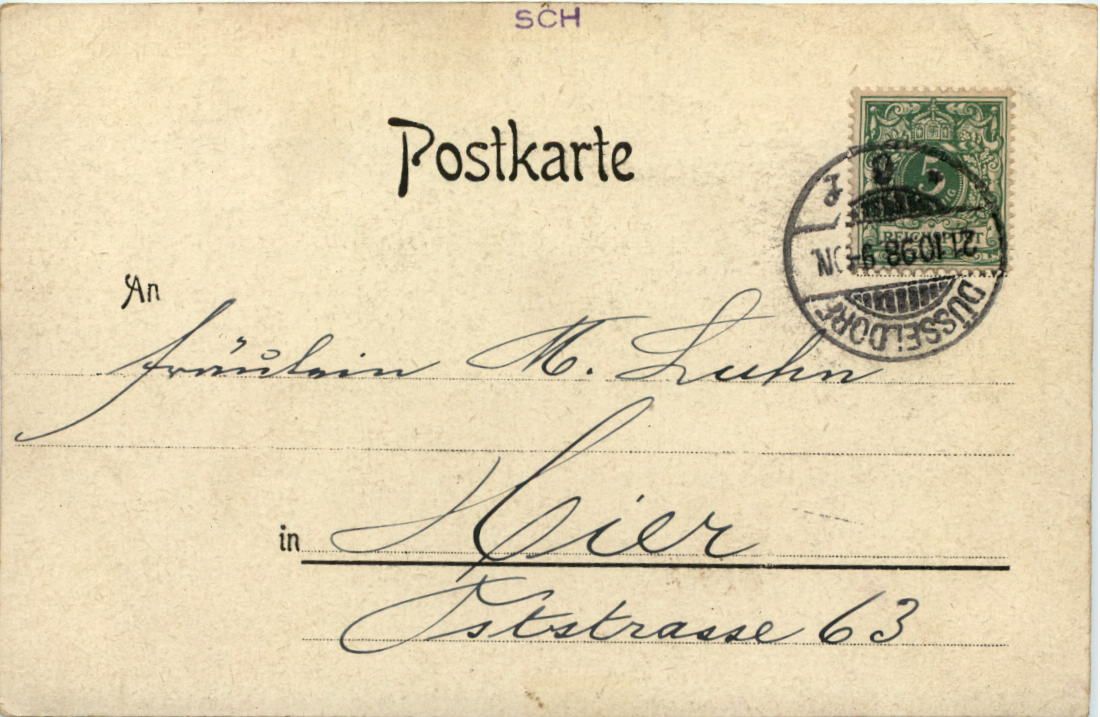 SCH
Postkarte
5
PFENNIG
REICHSPOST
21.10.98 9-10N.
DÜSSELDORF
An
Fräulein M. Luhn
in Hier
Oststrasse 63